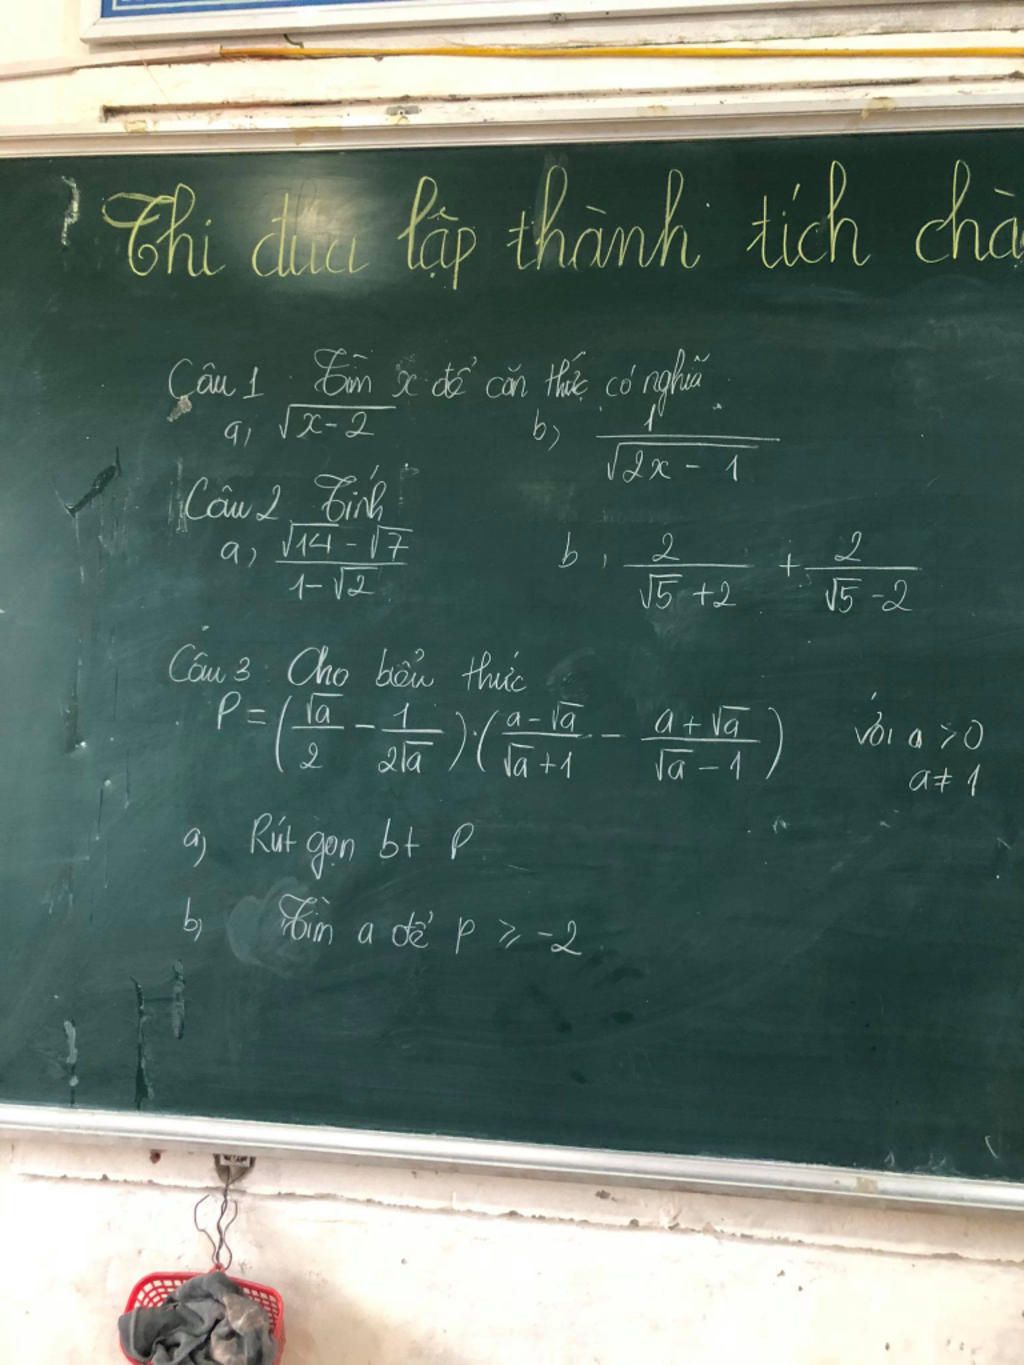 Thi đua lập thành tích chà
Câu 1 Tìm x để căn thức có nghĩa
a, √(x-2) b, 1/√(2x - 1)
Câu 2 Tính
a, (√14 - √7)/(1-√2) b, 2/(√5 +2) + 2/(√5 -2)
Câu 3 Cho biểu thức
P = (√a/2 - 1/(2√a)).((a-√a)/(√a+1) - (a+√a)/(√a-1)) với a > 0
a ≠ 1
a, Rút gọn bt P
b, Tìm a để P ≥ -2